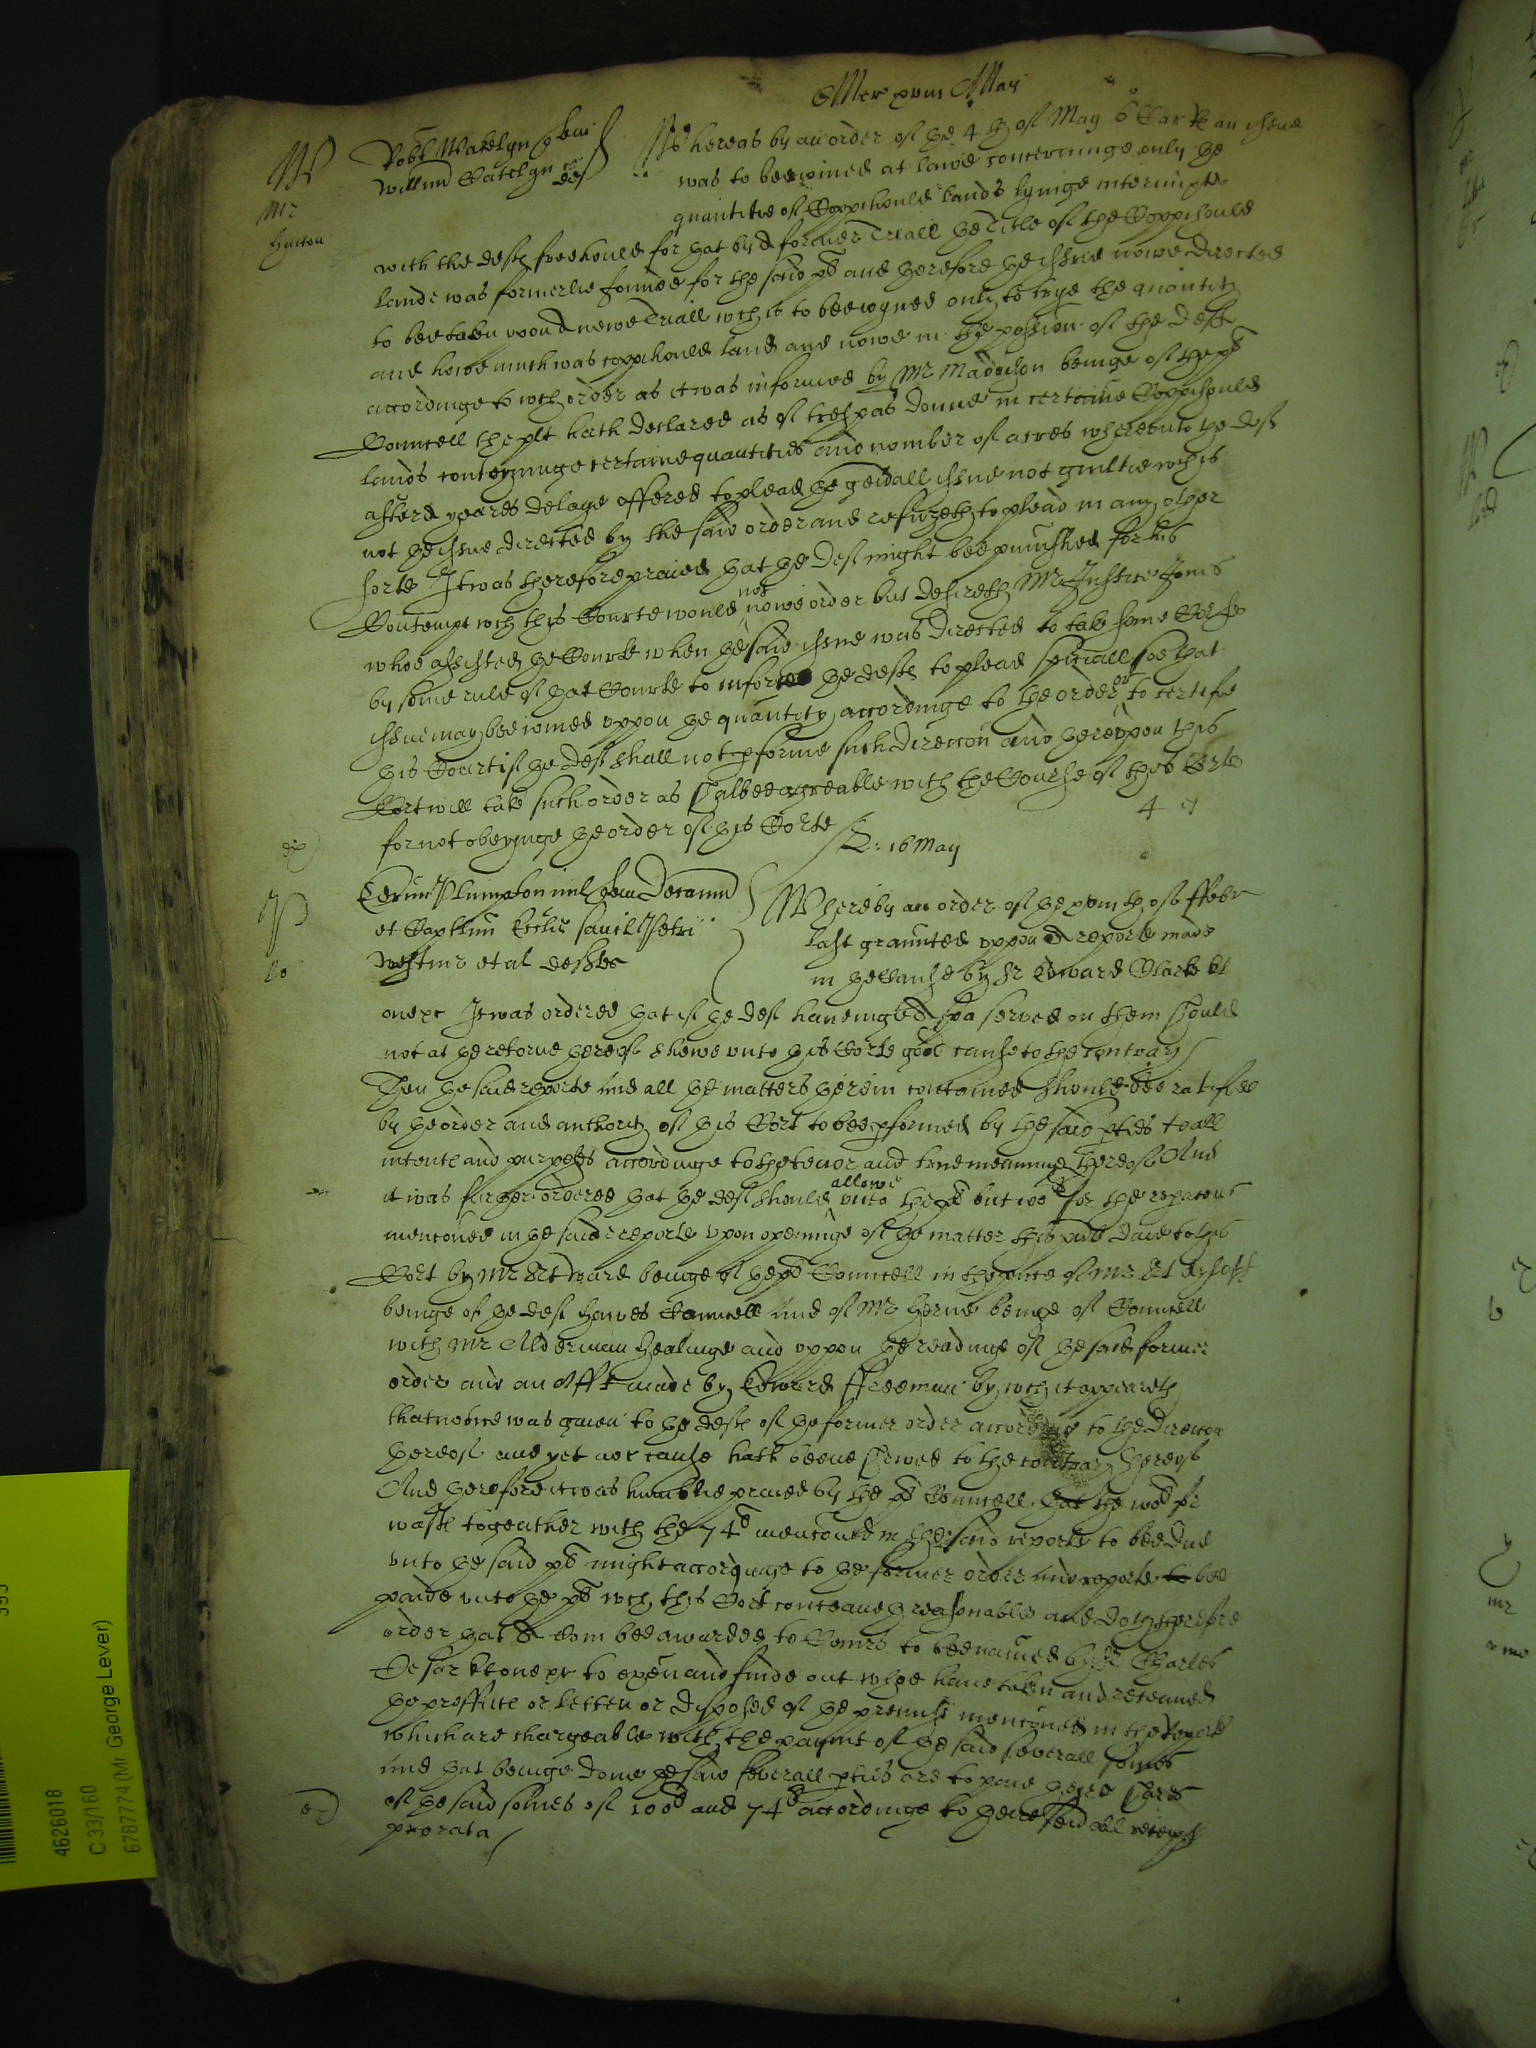 Mer xviii May
W
Mr
Hutton
Robt Wakelyn quer
Willim Catelyn def
Whereas by an order of ye 4th of May 6 Car R an issue
was to bee ioined at lawe concerninge only ye
quantitie of Coppihould lands lyinge intermixte
with the deftes freehould for yat by a former Triall ye Title of the Coppihould
lands was formerlie founde for the said plt and yerefore ye issue nowe directed
to bee taken upon a newe Triall wch is to bee ioyned only to trye the quantity
and howe much was coppihould land and nowe in the possion of the defte
accordinge to wch order as it was informed by Mr Maddison beinge of the plts
Councell the plt hath declared as of trespas donne in certaine Coppihould
lands conteyninge certaine quantities and nomber of acres whereunto the deft
after a yeares delaye offered to plead ye generall issue not guiltie wch is
not ye issue directed by the said order and refuzeth to plead in any other
sorte It was therefore praied yat ye deft might bee punished for his
Contempt wch this Courte would not nowe order but desireth Mr Justice Jones
whoe assisted ye Courte when ye said issue was directed to take some Corse
by some rule of yat Courte to inforce ye defte to plead speciall soe that
issue may bee ioined uppon ye quantity accordinge to the order or to certefie
yis Court if ye deft shall not pforme such direccon and yereuppon this
Cort will take such order as shalbee agreable with the Course of this Corte
for not obeyinge ye order of yis Corte
16 May
Whereby an order of ye xviiith of ffebr
last graunted uppon a reporte made
in ye Cause by Sr Edward Clarke kt
one &c It was ordered yat if ye deft haveinge a spa served on them should
not at ye retorne yereof shewe unto yis Corte good cause to the contrary
Then ye said reporte and all ye matters yerein contained should bee ratified
by ye order and authority of yis Cort to bee pformed by the said pties to all
intents and purposes accordinge to the tenor and true meaninge thereof And
it was further ordered yat ye deft should allowe unto the plt but 100l for the reparacons
mencioned in ye said reporte upon openinge of ye matter this pnte daie to this
Cort by Mr beinge of ye plts Councell in the pnce of Mr
beinge of ye deft Councell and of Mr Herne beinge of Councell
with Mr Alderman and uppon ye readinge of ye said former
order and an Afft made by Edward ffreeman by wch it appeareth
that notice was given to ye defte of ye former order accordinge to the direccon
yereof and yet noe cause hath beene shewed to the contrary thereof
And yerefore it was humblie praied by the plts Councell that the 100l for
wast togeather with the 74l mencioned in the said reporte to bee due
unto ye said plt might accordinge to ye former order and reporte bee
paide unto ye plt wch this Cort conceaveth reasonable and doth therefore
order yat a Com bee awarded to Comrs to bee named by Sr Charles
Cesar kt one &c to exam and finde out whoe have taken and receaved
ye proffitte or letten or disposed of ye premiss mencioned in the reporte
which are chargeable with the paymt of ye said severall somes
and yat beinge done ye said severall pties are to paye theire shares
of ye said somes of 100l and 74l accordinge to theire severall receipts
pro rata
4626018
C 33/160
6787774 (Mr George Lever)